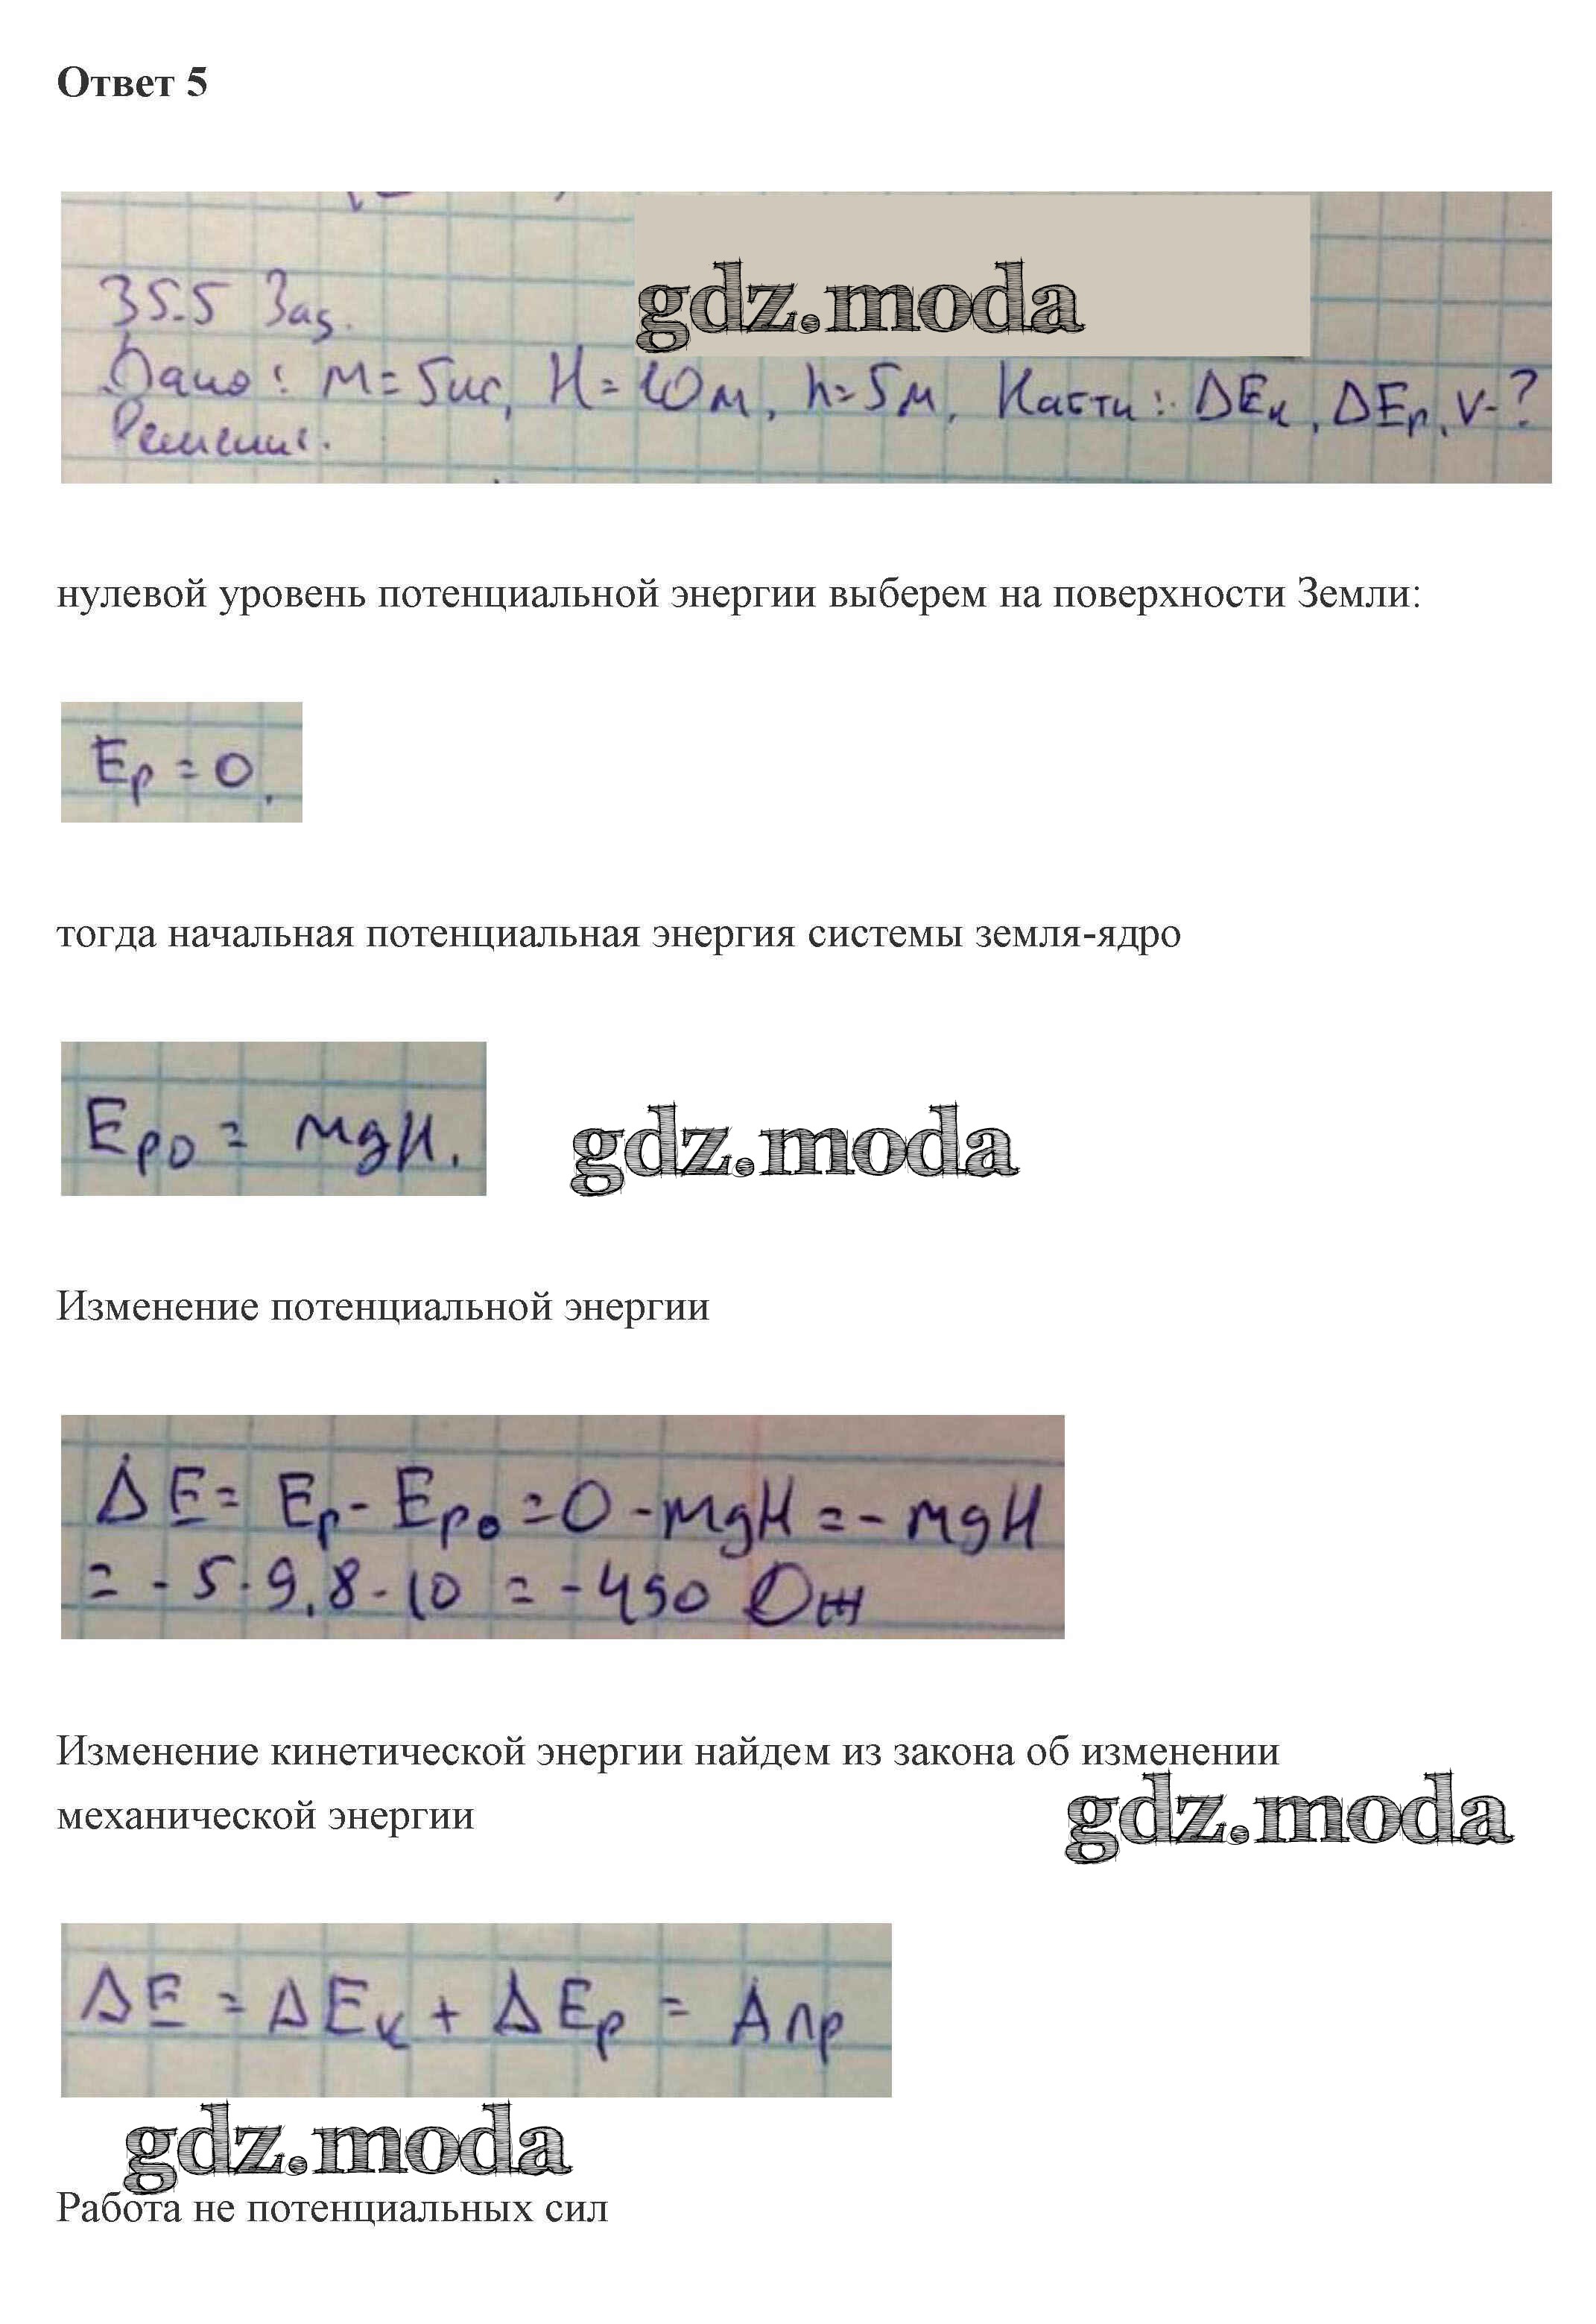 Ответ 5
gdz.moda
35.5 Зад.
Дано: m = 5кг, H = 10м, h = 5м, Найти: ΔEк, ΔEp, v - ?
Решение:
нулевой уровень потенциальной энергии выберем на поверхности Земли:
Ep = 0.
тогда начальная потенциальная энергия системы земля-ядро
Ep0 = mgH.
gdz.moda
Изменение потенциальной энергии
ΔE = Ep - Ep0 = 0 - mgH = - mgH
= - 5 · 9,8 · 10 = - 490 Дж
Изменение кинетической энергии найдем из закона об изменении
механической энергии
gdz.moda
ΔE = ΔEк + ΔEp = Aпр
gdz.moda
Работа не потенциальных сил